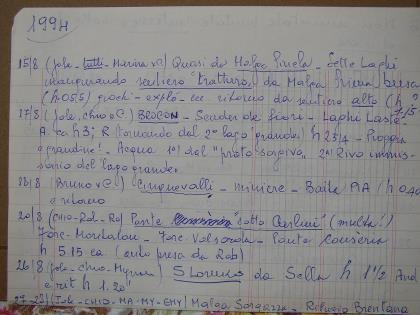 1994
15/8 (Jole - tutti - Marina v C) Quasi da Malga Sinela - Sette Laghi
inaugurando sentiero "tratturo" da Malga Prima busa
(h 0.55) giochi - explo - ecc ritorno da sentiero alto (h
17/8 (Jole, Chio e C.) BROCON - Scuder de fiori - Laghi Lasté
A. ca h 3; R (tornando dal 2° lago grande) h 2 3/4 - Pioggia
e grandine! - Acqua 1° del "proto sorgivo" 2° Rivo immis
sario del lago grande.
18/8 (Bruno v C.) Cinquevalli - miniere - Baita PIA (h 0.40
e ritorno
20/8 (CHIO - Rob - Ro) Ponte "sotto (multa!)
Forc. Montalon - Forc. Valsorda - Ponte Conseria
h 5.15 ca (auto presa da Rob)
26/8 (Jole - Chio - Myrna) S Lorenzo da Sella h 1 1/2 And
e rit h 1.20'
27-28/8 (Jole - CHIO - MA - MY - EMY) Malga Sorgazza - Rifugio Brentana